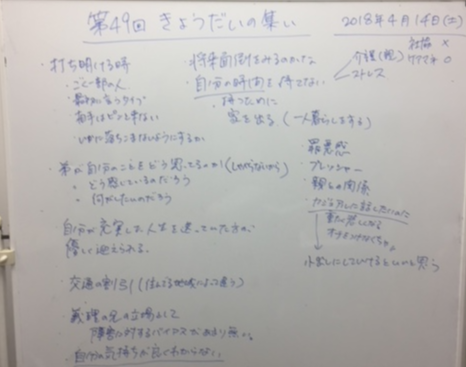 第49回 きょうだいの集い
2018年4月14日(土)
・打ち明ける時
・ごく一部の人
・最初に言うタイプ
・相手はピンと来ない
・いかに落ちこまないようにするか
将来面倒をみるのかな
・自分の時間を持てない
持つために
家を出る(一人暮らしをする)
介護(親)
ストレス
社協 ×
ケアマネ ○
・弟が自分のことをどう思ってるのか(しゃべらないから)
・どう感じているのだろう
・何がしたいのだろう
・罪悪感
・プレッシャー
・親との関係
自分が充実した人生を送っていた方が、
優しく迎えられる。
オチをつけなくちゃ
小出しにしていけるといいと思う
・交通の割引(住んでる地域によって違う)
・義理の兄の立場として
障害に対するバイアスがあまり無い。
・自分の気持ちが良くわからない